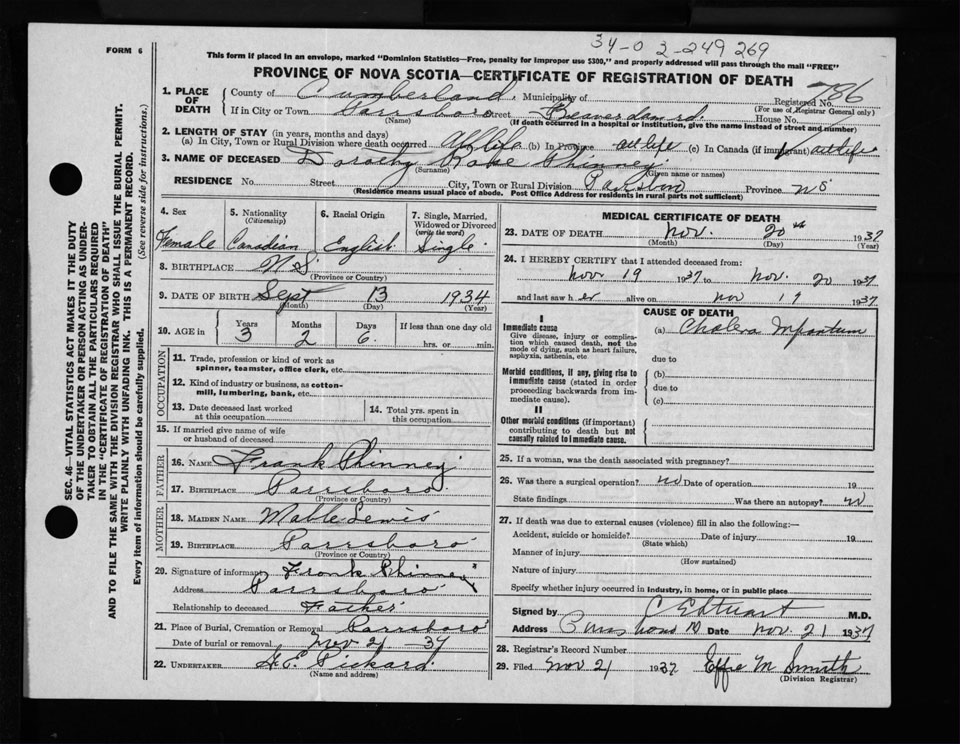 34-0 3-249 269
FORM 6
This form if placed in an envelope, marked "Dominion Statistics—Free, penalty for improper use $300," and properly addressed will pass through the mail "FREE"
PROVINCE OF NOVA SCOTIA—CERTIFICATE OF REGISTRATION OF DEATH
1. PLACE OF DEATH
County of Cumberland. Municipality of Registered No. 786
(For use of Registrar General only)
If in City or Town Parrsboro Street Beaverdam rd. House No.
(Name) (If death occurred in a hospital or institution, give the name instead of street and number)
2. LENGTH OF STAY (in years, months and days)
(a) In City, Town or Rural Division where death occurred All life (b) In Province all life (c) In Canada (if immigrant) all life
3. NAME OF DECEASED Dorothy Phinney
(Surname) (Given name or names)
RESIDENCE No. Street City, Town or Rural Division Province NS
(Residence means usual place of abode. Post Office Address for residents in rural parts not sufficient)
4. Sex Female
5. Nationality (Citizenship) Canadian
6. Racial Origin English
7. Single, Married, Widowed or Divorced (write the word) Single
8. BIRTHPLACE N.S.
(Province or Country)
9. DATE OF BIRTH Sept 13 1934
(Month) (Day) (Year)
10. AGE in Years 3 Months 2 Days 6 If less than one day old hrs. or min.
OCCUPATION
11. Trade, profession or kind of work as spinner, teamster, office clerk, etc.
12. Kind of industry or business, as cotton-mill, lumbering, bank, etc.
13. Date deceased last worked at this occupation
14. Total yrs. spent in this occupation
15. If married give name of wife or husband of deceased
FATHER
16. NAME Frank Phinney
17. BIRTHPLACE Parrsboro
(Province or Country)
MOTHER
18. MAIDEN NAME Mable Lewis
19. BIRTHPLACE Parrsboro
(Province or Country)
20. Signature of informant Frank Phinney
Address Parrsboro
Relationship to deceased Father
21. Place of Burial, Cremation or Removal Parrsboro
Date of burial or removal Nov 21 37
22. UNDERTAKER Pickard
(Name and address)
MEDICAL CERTIFICATE OF DEATH
23. DATE OF DEATH Nov. 20th 1937
(Month) (Day) (Year)
24. I HEREBY CERTIFY that I attended deceased from:
Nov 19 1937 to Nov. 20 1937
and last saw h er alive on Nov 19 1937
CAUSE OF DEATH
I
Immediate cause
Give disease, injury or complication which caused death, not the mode of dying, such as heart failure, asphyxia, asthenia, etc.
(a) Cholera Infantum
due to
Morbid conditions, if any, giving rise to immediate cause (stated in order proceeding backwards from immediate cause).
(b)
due to
(c)
II
Other morbid conditions (if important) contributing to death but not causally related to immediate cause.
25. If a woman, was the death associated with pregnancy?
26. Was there a surgical operation? no Date of operation 19
State findings Was there an autopsy? no
27. If death was due to external causes (violence) fill in also the following:—
Accident, suicide or homicide? Date of injury 19
(State which)
Manner of injury
(How sustained)
Nature of injury
Specify whether injury occurred in industry, in home, or in public place
Signed by M.D.
Address Date Nov. 21 1937
28. Registrar's Record Number
29. Filed Nov 21 1937 Effie M Smith
(Division Registrar)
SEC. 46—VITAL STATISTICS ACT MAKES IT THE DUTY
OF THE UNDERTAKER OR PERSON ACTING AS UNDER-
TAKER TO OBTAIN ALL THE PARTICULARS REQUIRED
IN THE "CERTIFICATE OF REGISTRATION OF DEATH"
AND TO FILE THE SAME WITH THE DIVISION REGISTRAR WHO SHALL ISSUE THE BURIAL PERMIT.
WRITE PLAINLY WITH UNFADING INK. THIS IS A PERMANENT RECORD.
Every item of information should be carefully supplied. (See reverse side for instructions.)